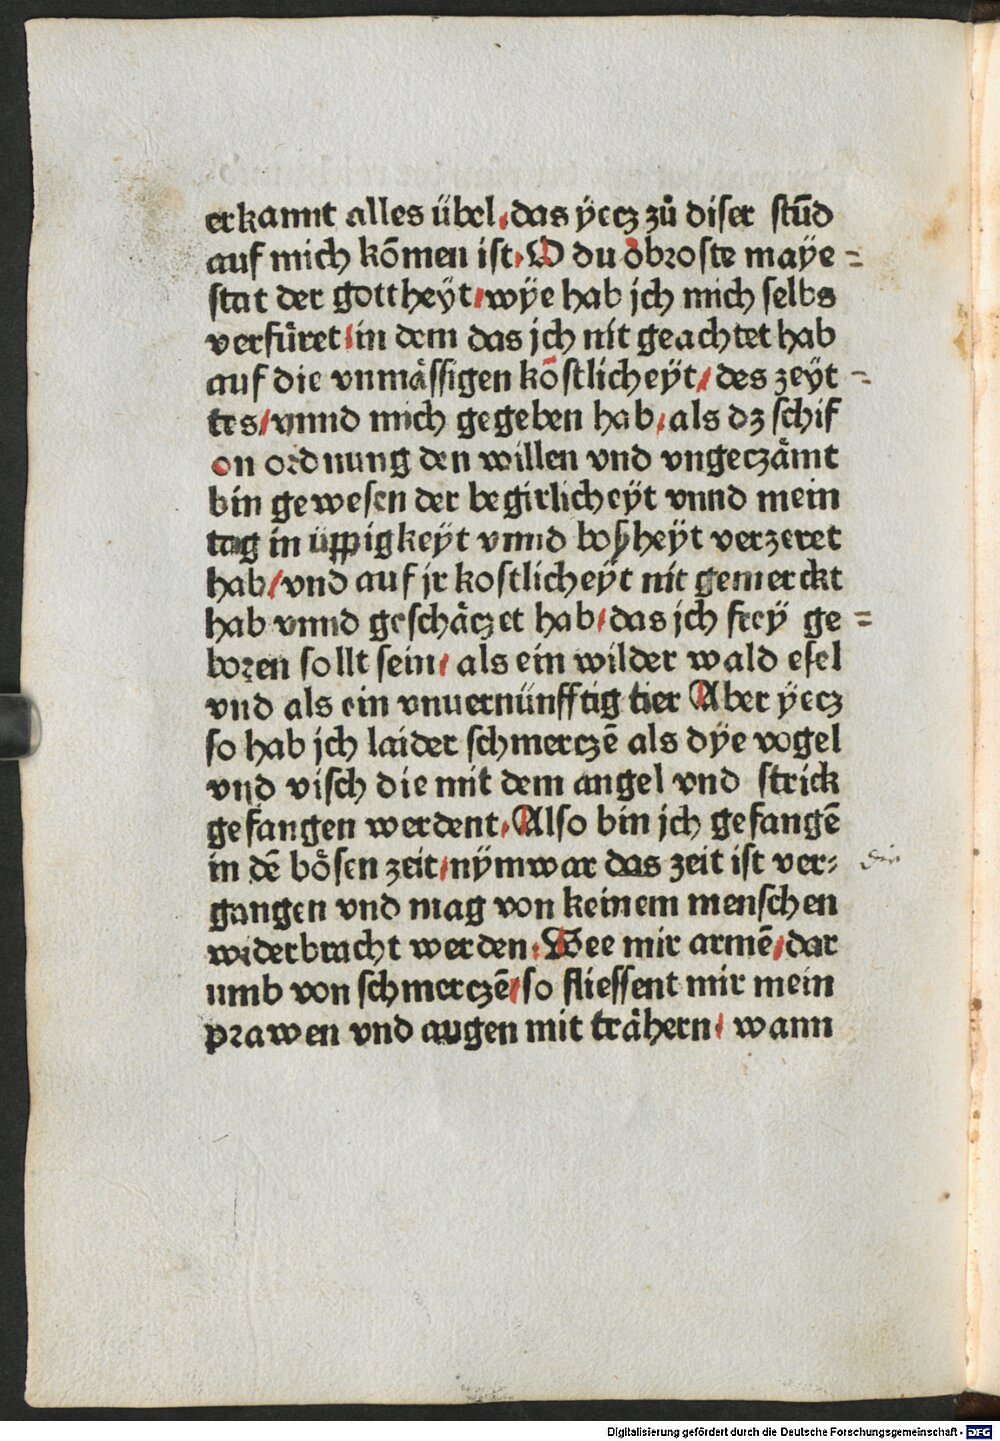 erkannt alles übel / das ÿecz zů diser stūd
auf mich kōmen ist / O du öbroste maÿe =
stat der gottheÿt / wÿe hab jch mich selbs
verfüret / in dem das jch nit geachtet hab
auf die vnmässigen köstlicheÿt / des zeÿt =
tes / vnnd mich gegeben hab / als dz schif
on ordnung den willen vnd vngeczämt
bin gewesen der begirlicheÿt vnnd mein
tag in üppigkeÿt vnnd boßheÿt verzeret
hab / vnd auf jr kostlicheÿt nit gemerckt
hab vnnd geschäczet hab / das jch freÿ ge =
boren sollt sein / als ein wilder wald esel
vnd als ein vnuernünfftig tier Aber ÿecz
so hab jch laider schmerczē als dÿe vogel
vnd visch die mit dem angel vnd strick
gefangen werdent / Also bin jch gefangē
in dē bösen zeit / nÿmwar das zeit ist ver=
gangen vnd mag von keinem menschen
widerbracht werden / Wee mir armē / dar
umb von schmerczē / so fliessent mir mein
prawen vnd augen mit trähern / wann
Digitalisierung gefördert durch die Deutsche Forschungsgemeinschaft - DFG